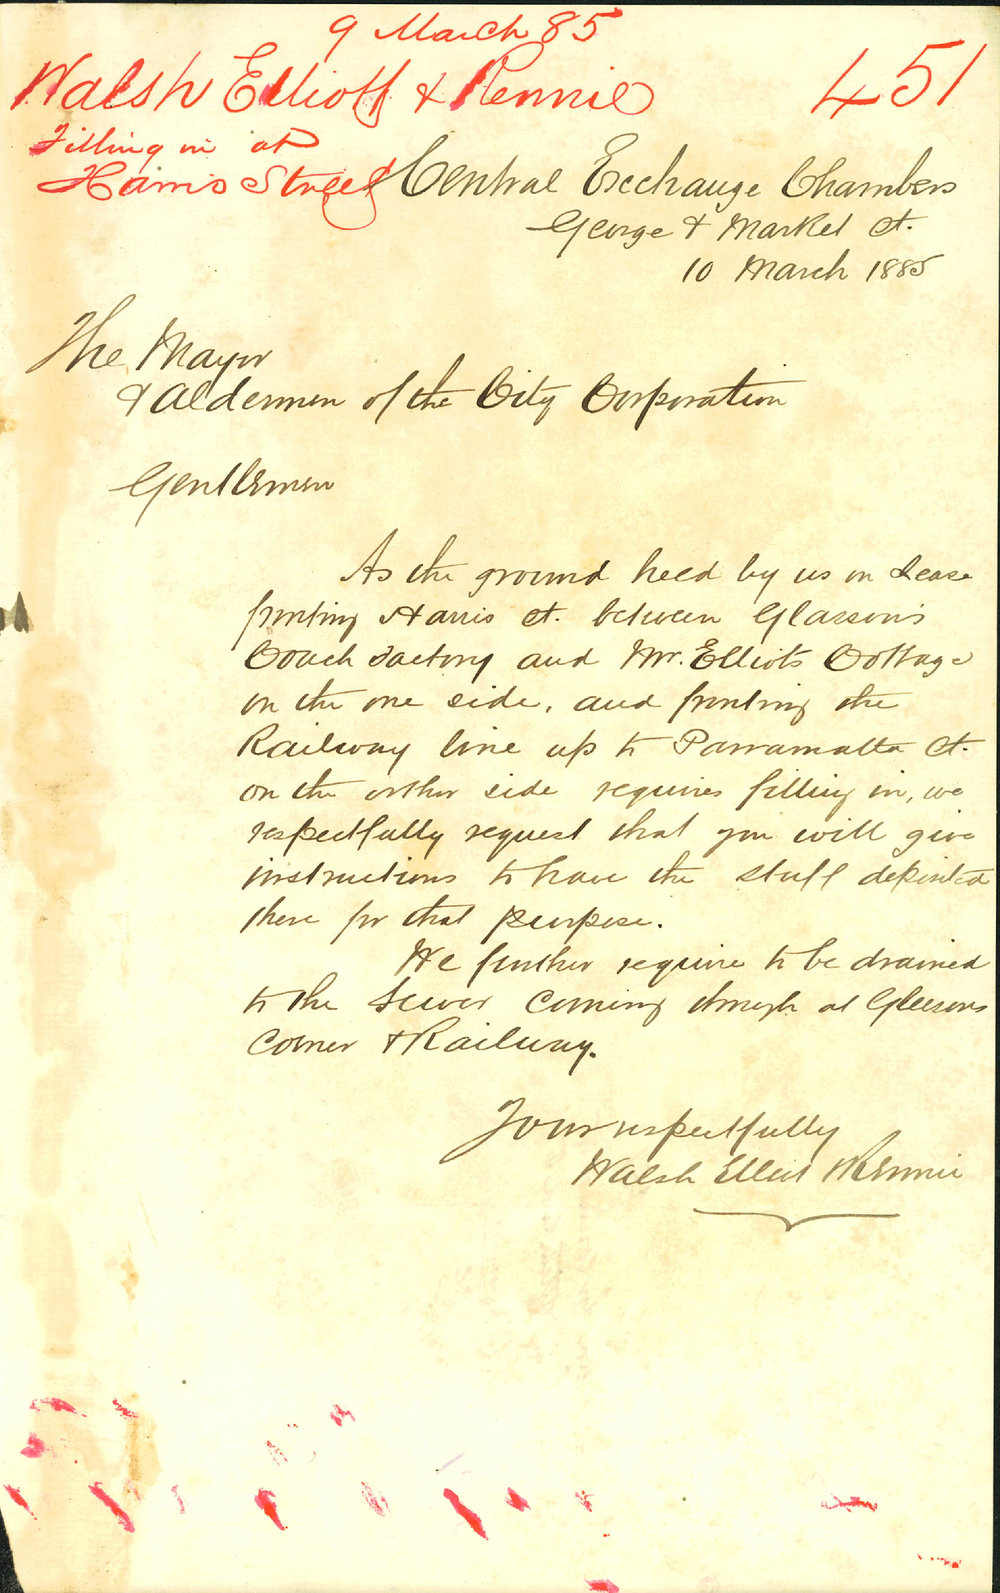 9 March 85
Walsh Elliott & Rennie
451
Filling in at
Harris Street
Central Exchange Chambers
George & Market St.
10 March 1885
The Mayor
& Aldermen of the City Corporation
Gentlemen
As the ground held by us on Lease
fronting Harris St. between Glasson's
Coach Factory and Mr. Elliots Cottage
on the one side, and fronting the
Railway line up to Parramatta St.
on the orther side requires filling in, we
respectfully request that you will give
instructions to have the stuff deposited
there for that purpose.
We further require to be drained
to the Sewer coming through at Gleesons
Corner & Railway.
Your respectfully
Walsh Elliot & Rennie